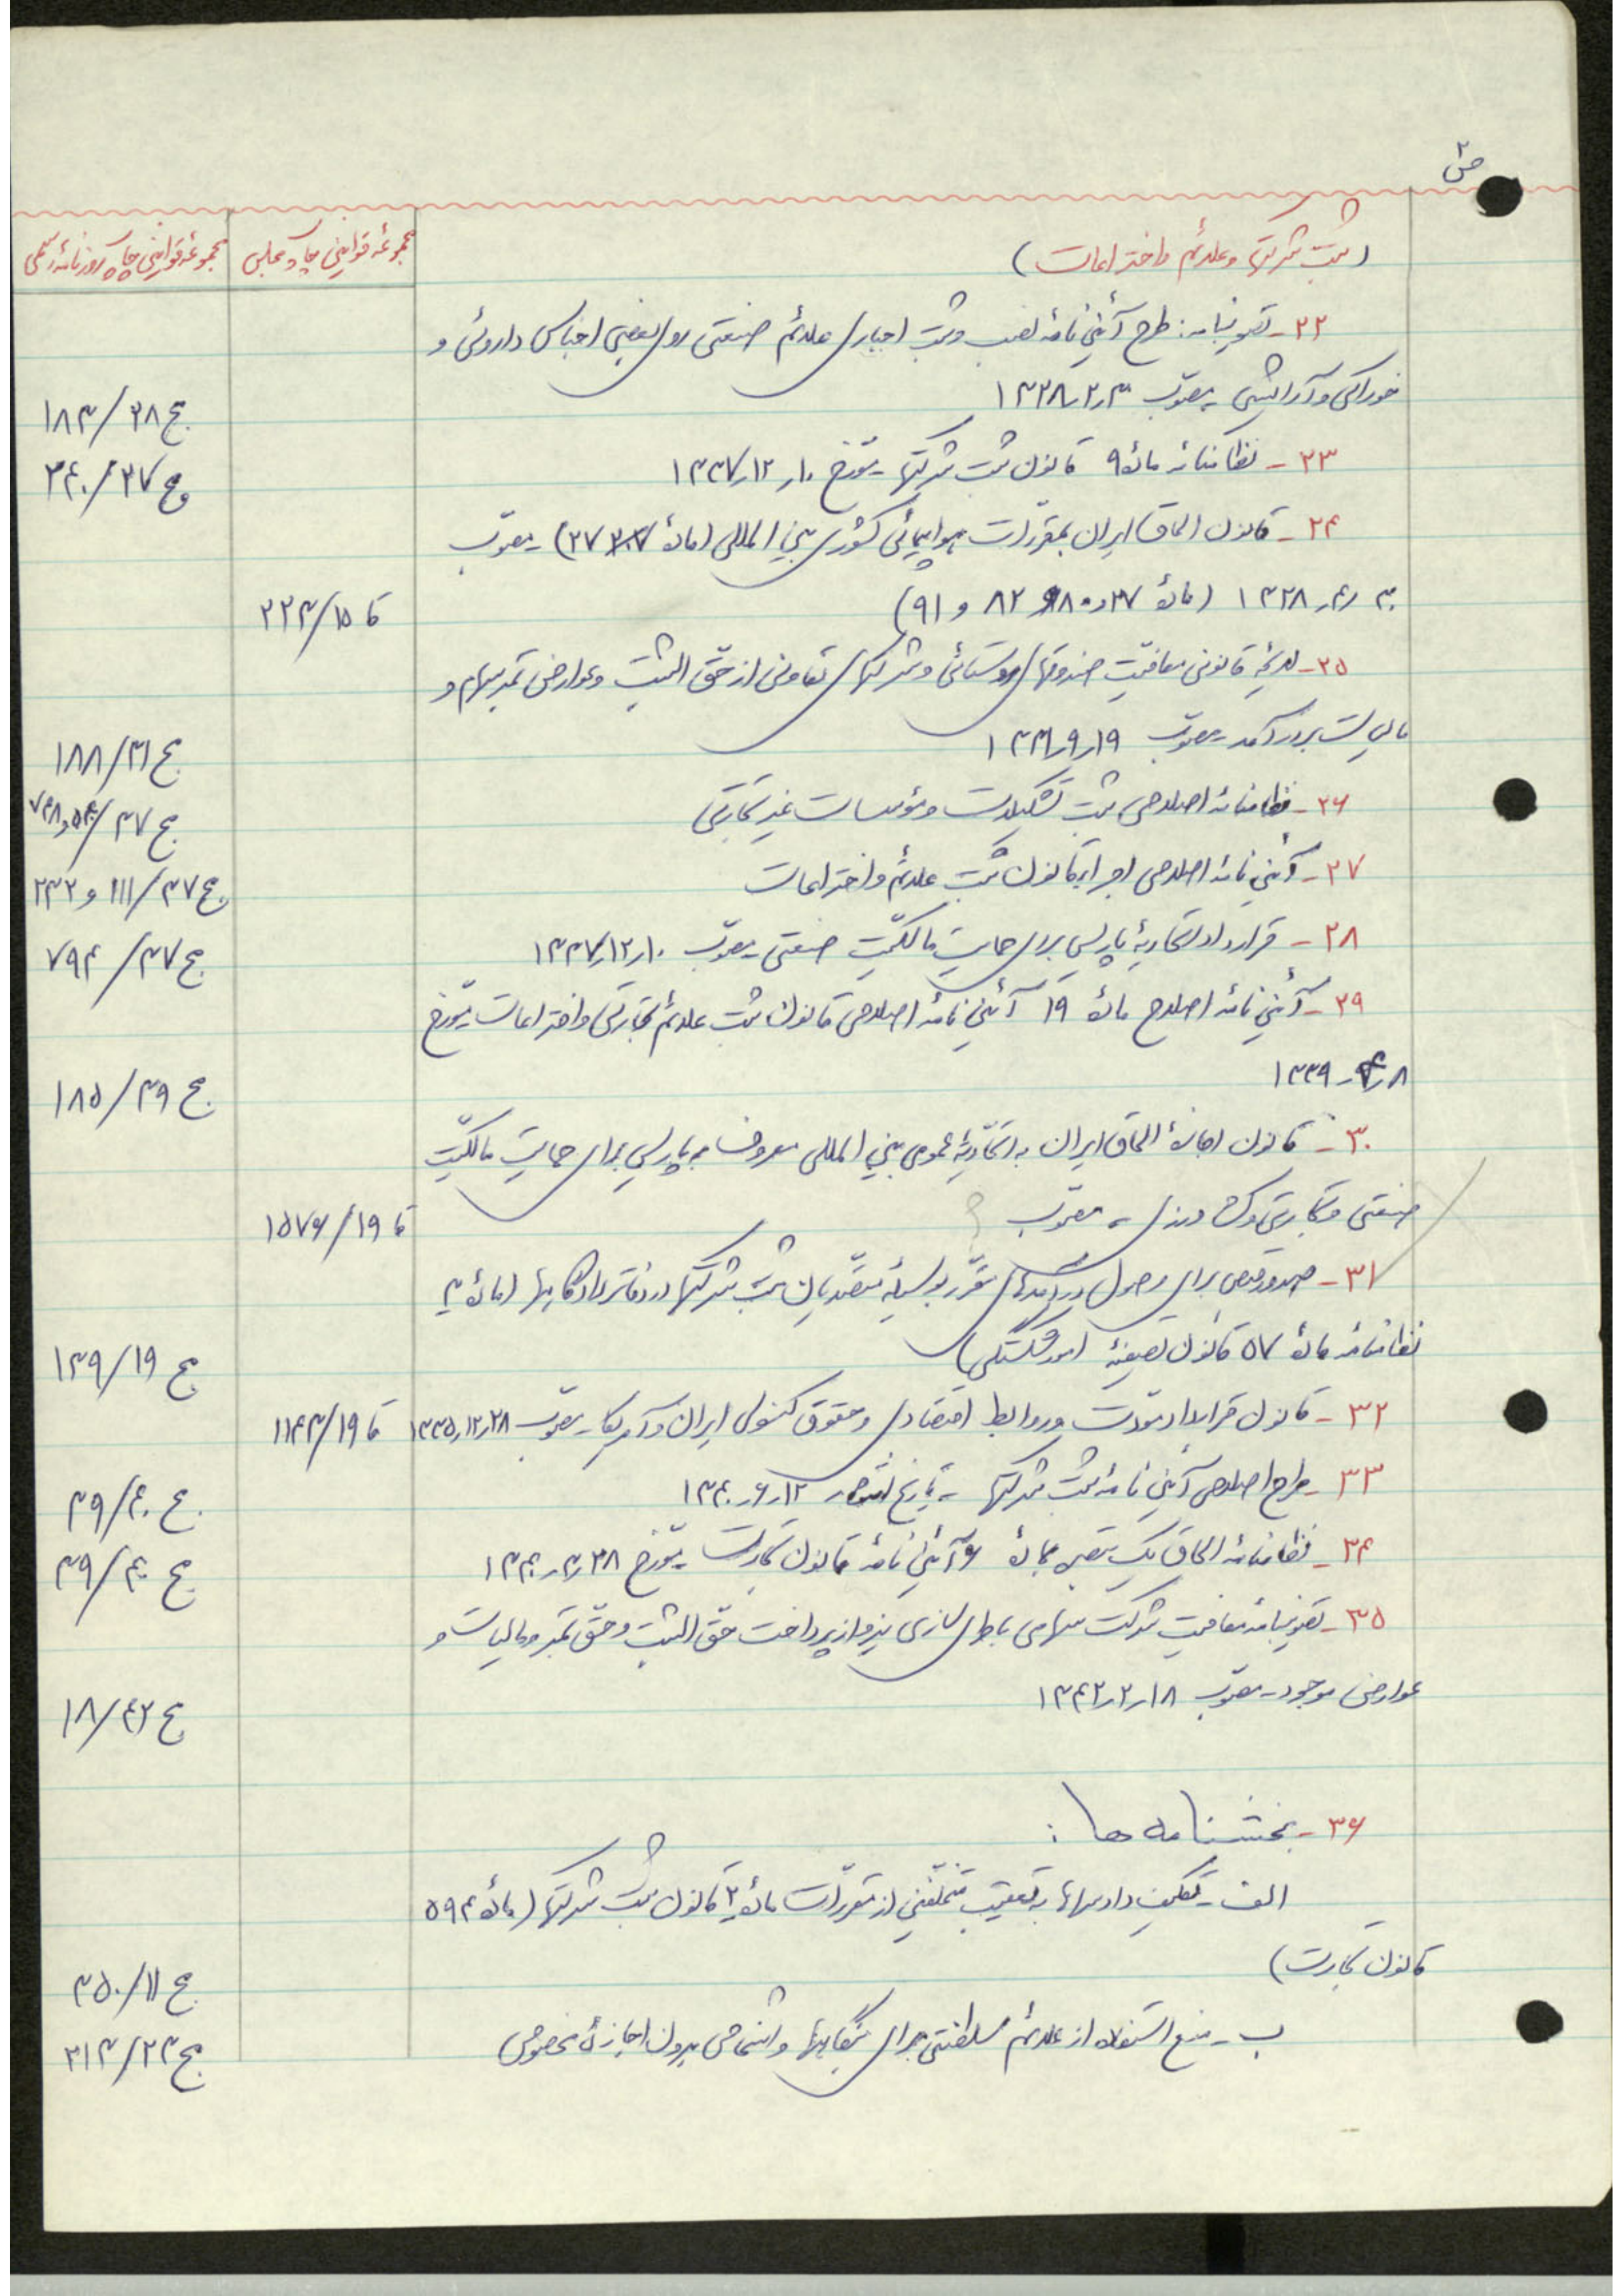 ص۲
(ثبت شرکتها و علائم و اختراعات)
مجموعه قوانین چاپ مجلس
مجموعه قوانین چاپ روزنامه رسمی
۲۲- تصویبنامه: طرح آئین نامه نصب و ثبت اجباری علائم صنعتی روی بعضی اجناس داروئی و
خوراکی و آرایشی - مصوّب ۱۳۲۸
ج ۲۸/۱۸۳
۲۳- نظامنامه ماده ۹ قانون ثبت شرکتها - مورّخ ۱۰ر۱۲ر۱۳۳۷
ج ۳۷/۳۴۰
۲۴- قانون الحاق ایران بمقرّرات هواپیمائی کشوری بین المللی (ماده ۲۷) - مصوّب
۱۳۲۸ (مادهٔ ۳۷ و ۸۰ ۸۲ و ۹۱)
قا ۱۵/۲۲۳
۲۵- لایحه قانونی معافیّت صندوقهای روستائی و شرکتهای تعاونی از حقّ الثبت و عوارض تمبر سهام و
مالیات بر درآمد - مصوّب ۱۹ر۹ر۱۳۳۱
ج ۳۱/۱۸۸
۲۶- نظامنامه اصلاحی ثبت تشکیلات و مؤسسات غیر تجارتی
ج ۳۷/
۲۷- آئین نامه اصلاحی اجرای قانون ثبت علائم و اختراعات
ج ۳۷/۱۱۱ و ۲۳۲
۲۸- قرارداد اتحادیهٔ پاریس برای حمایت مالکیّت صنعتی - مصوّب ۱۰ر۱۲ر۱۳۳۷
ج ۳۷/۷۹۴
۲۹- آئین نامه اصلاح مادهٔ ۱۹ آئین نامهٔ اصلاحی قانون ثبت علائم تجارتی و اختراعات - مورّخ
۱۳۳۹
ج ۳۹/۱۸۵
۳۰- قانون اجازهٔ الحاق ایران به اتّحادیّهٔ عمومی بین المللی معروف به پاریس برای حمایت مالکیّت
صنعتی و تجارتی و کشاورزی - مصوّب ؟
قا ۱۹/۱۵۷۶
۳۱- صدور قبض برای وصول درآمدهای مقرّر بوسیلهٔ متصدّیان ثبت شرکتها در دفاتر دادگاهها (مادهٔ ۳
نظامنامه مادهٔ ۵۷ قانون تصفیهٔ امور ورشکستگی)
ج ۱۹/۱۳۹
۳۲- قانون قرارداد مودّت و روابط اقتصادی و حقوق کنسولی ایران و آمریکا - مصوّب ۲۸ر۱۲ر۱۳۳۵
قا ۱۹/۱۱۴۳
۳۳- طرح اصلاحی آئین نامه ثبت شرکتها - تاریخ انتشار ۱۲ر۶ر۱۳۴۰
ج ۴۰/۳۹
۳۴- نظامنامه الحاق یک تبصره بمادهٔ ۶ آئین نامهٔ قانون تجارت - مورّخ ۲۸ر۳ر۱۳۴۰
ج ۴۰/۳۹
۳۵- تصویبنامه معافیت شرکت سهامی باطری سازی نیرو از پرداخت حقّ الثبت و حقّ تمبر و مالیات و
عوارض موجود - مصوّب ۱۸ر۲ر۱۳۴۲
ج ۴۲/۱۸
۳۶- بخشنامه ها:
الف - تکلیف دادسراها به تعقیب متخلّفین از مقرّرات مادهٔ ۲ قانون ثبت شرکتها (مادهٔ ۵۹۴
قانون تجارت)
ج ۱۱/۳۵۰
ب - منع استفاده از علائم سلطنتی برای بنگاهها و اشخاص بدون اجازهٔ مخصوص
ج ۲۳/۲۱۳